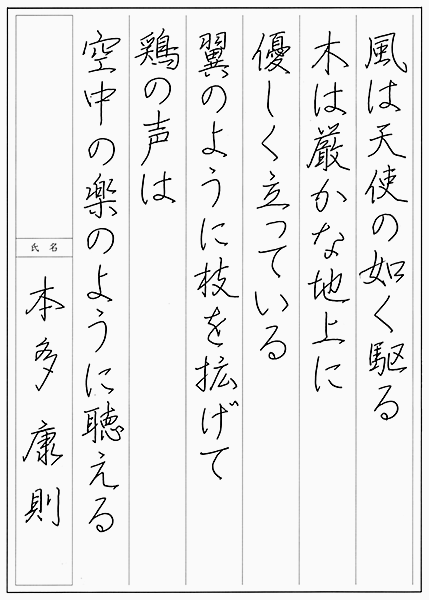 風は天使の如く駆る
木は厳かな地上に
優しく立っている
翼のように枝を拡げて
鶏の声は
空中の楽のように聴える
氏名
本多康則